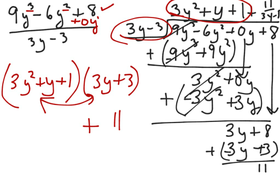 9y³ - 6y² + 8
+0y
3y - 3
(3y² + y + 1) (3y + 3)
+ 11
3y² + y + 1 + 11
3y - 3 9y³ - 6y² + 0y + 8
+ 9y³ + 9y²
3y² + 0y
+ -3y² + 3y
3y + 8
+ -3y + 3
11